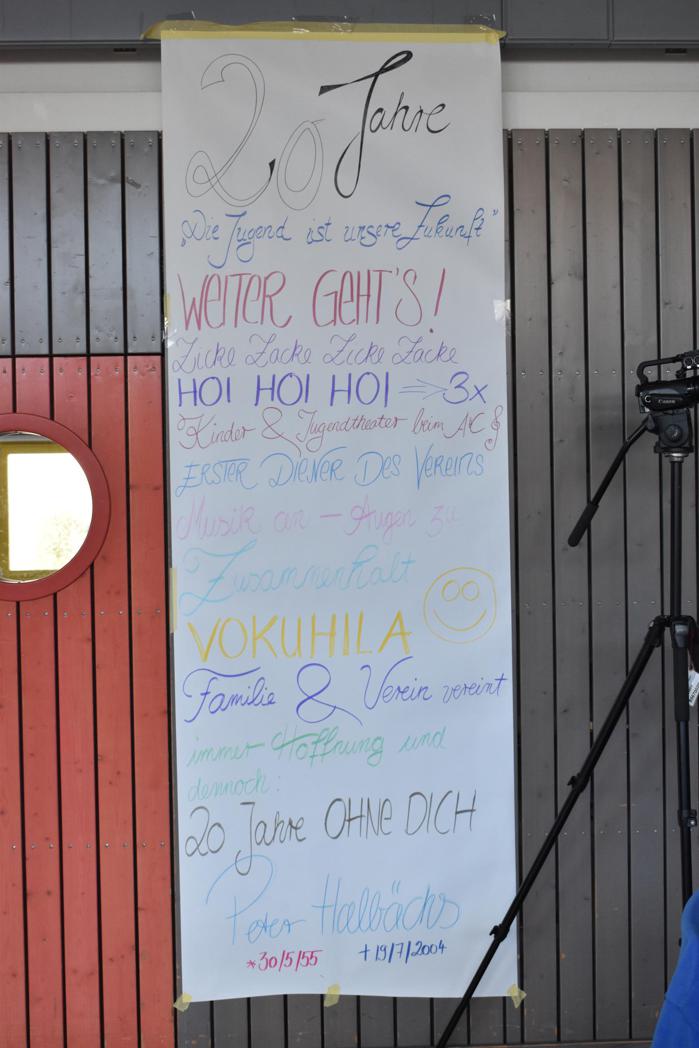 20 Jahre
"Die Jugend ist unsere Zukunft"
WEITER GEHT'S!
Zicke Zacke Zicke Zacke
HOI HOI HOI ⇒ 3x
Kinder & Jugendtheater beim AC
ERSTER DIENER DES VEREINS
Musik an - Augen zu
Zusammenhalt
VOKUHILA
Familie & Verein vereint
immer Hoffnung und
dennoch:
20 Jahre OHNE DICH
Peter Halbächs
*30/5/55 †19/7/2004
Canon